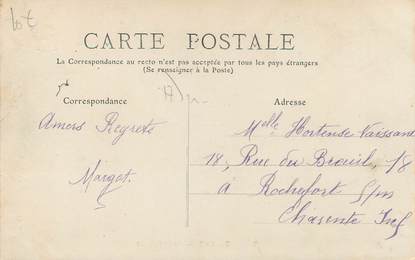 CARTE POSTALE
La Correspondance au recto n'est pas acceptée par tous les pays étrangers
(Se renseigner à la Poste)
Correspondance
Adresse
Amers Regrets
Margot.
Melle Hortense Vaissant
18, Rue du Breuil, 18
à Rochefort s/m
Charente Inf